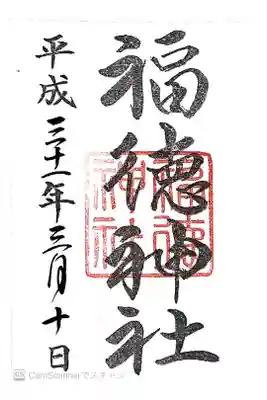 福徳神社
平成三十一年三月十日
福徳
神社
CS CamScannerでスキャン